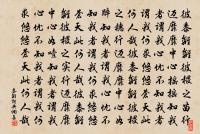 彼黍離離彼稷之苗行
邁靡靡中心搖搖知我
者謂我心憂不知我者
謂我何求悠悠蒼天此
何人哉彼黍離離彼稷
之穗行邁靡靡中心如
醉知我者謂我心憂不
知我者謂我何求悠悠
蒼天此何人哉彼黍離
離彼稷之實行邁靡靡
中心如噎知我者謂我
心憂不知我者謂我何
求悠悠蒼天此何人哉